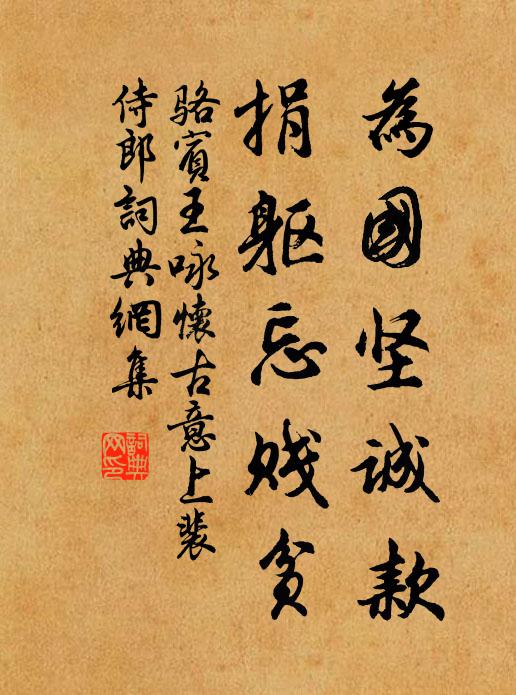 為國坚誠款
捐軀忘賎貧
骆賓王咏懷古意上裴
侍郎詞典網集
詞典网印